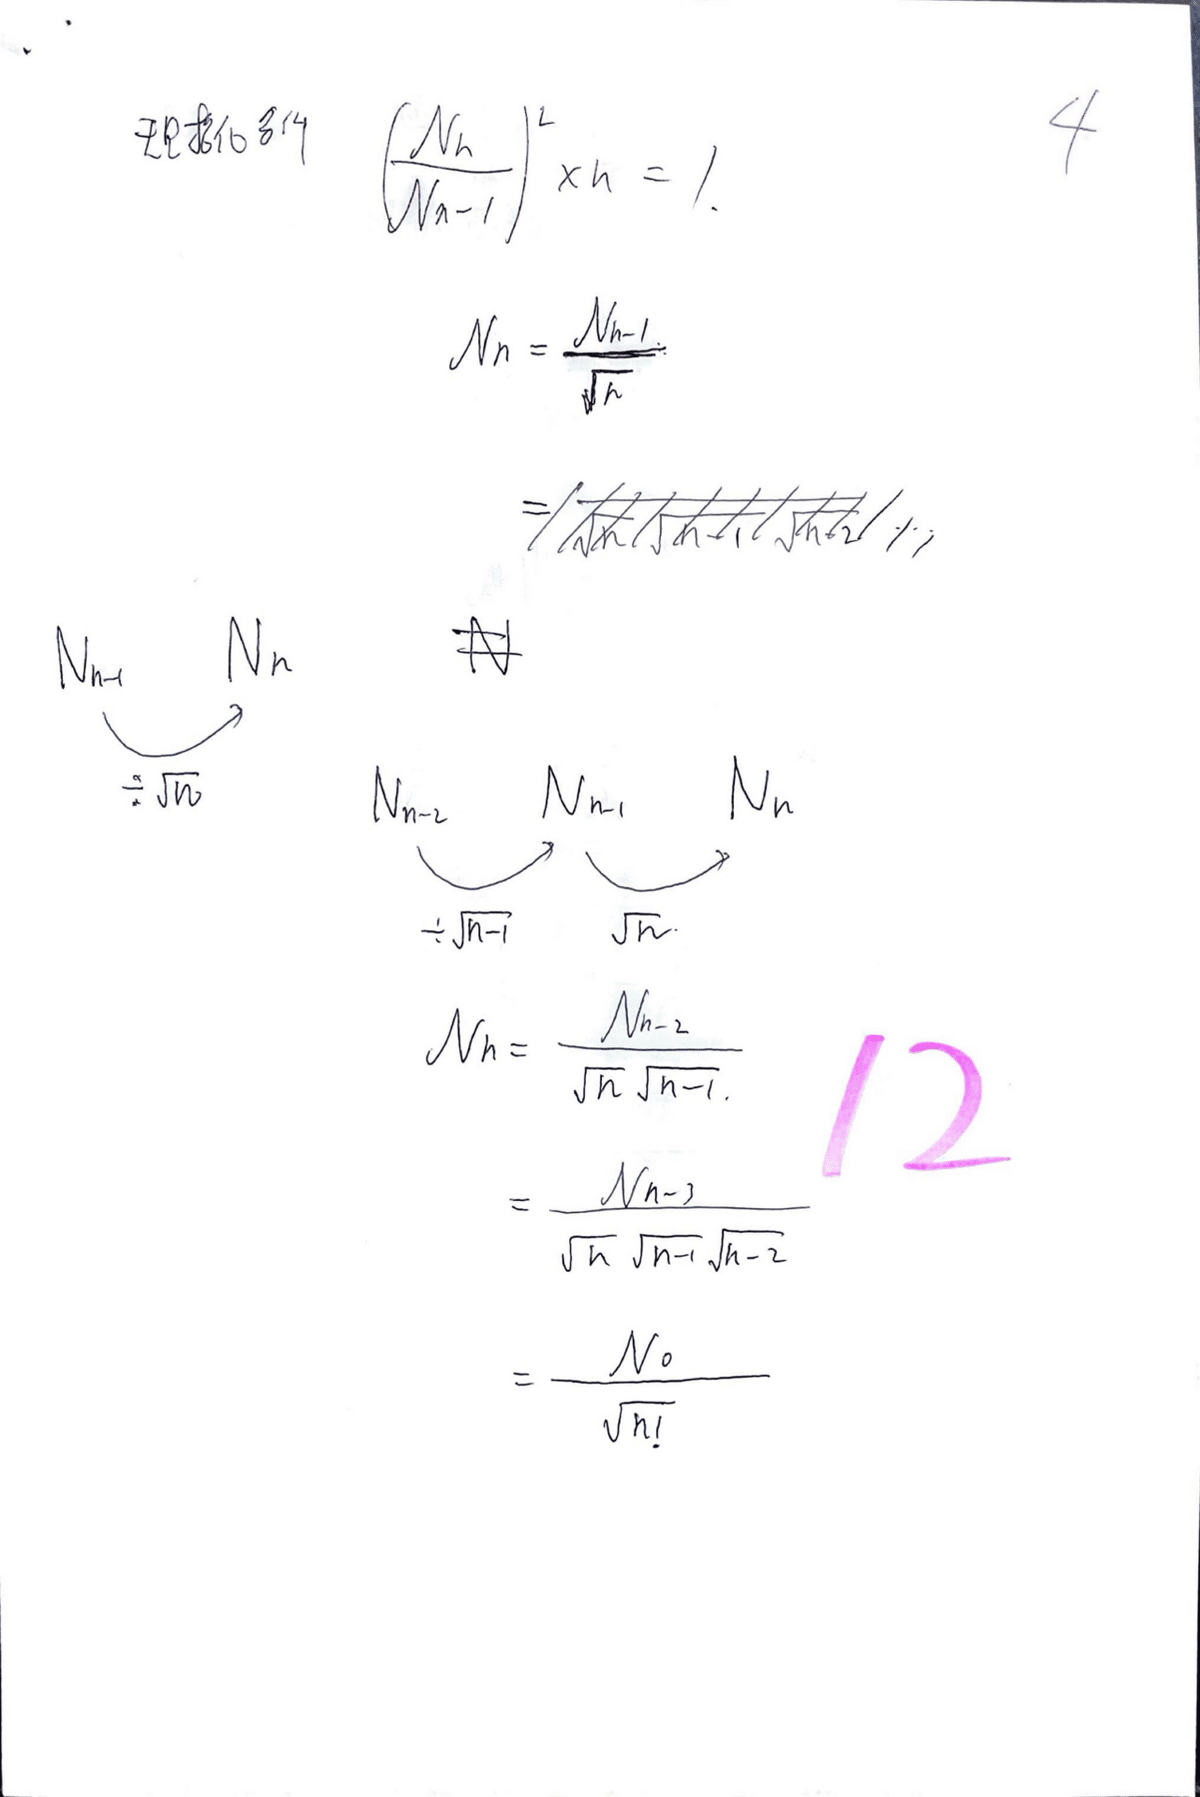 4
(Nn/Nn-1)² × n = 1.
Nn = Nn-1/√n
Nn-1 Nn N
÷√n
Nn-2 Nn-1 Nn
÷√n-1 √n.
Nn = Nn-2/√n √n-1.
12
= Nn-3/√n √n-1 √n-2
= N0/√n!